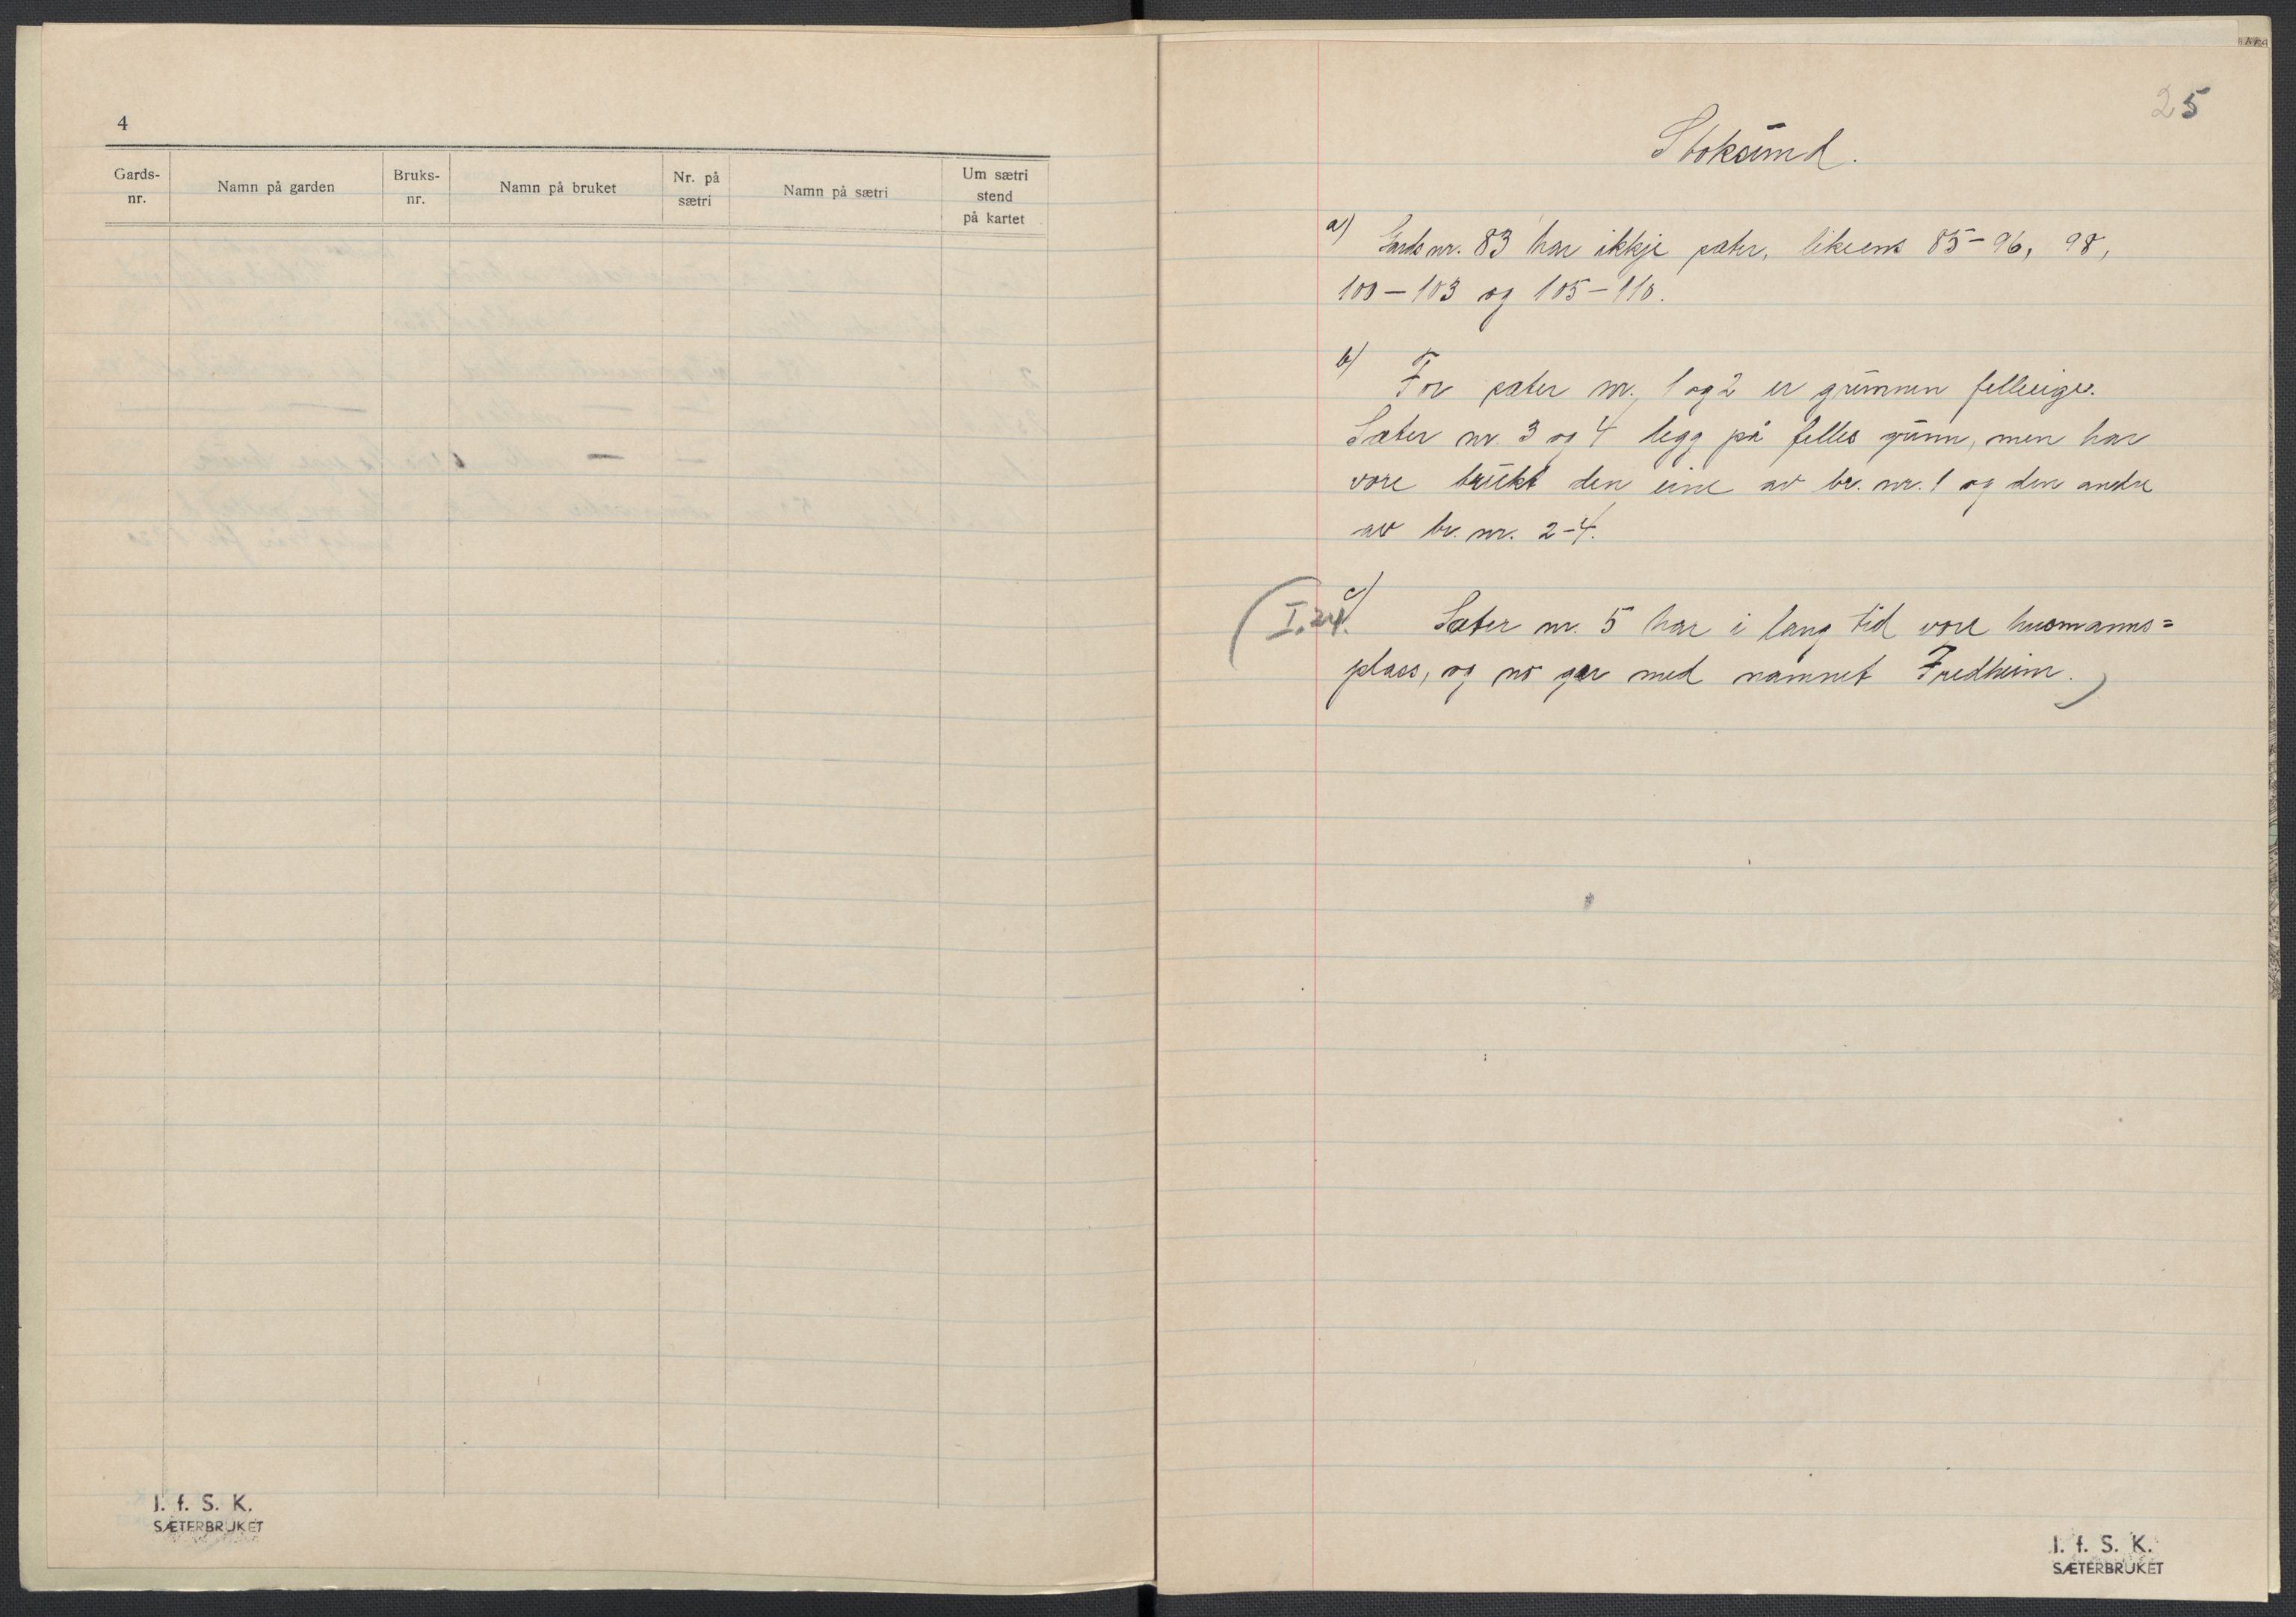 4
Gards-
nr.
Namn på garden
Bruks-
nr.
Namn på bruket
Nr. på
sætri
Namn på sætri
Um sætri
stend
på kartet
I. f. S. K.
SÆTERBRUKET
25
Stoksund.
a) Gards nr. 83 har ikkje sæter, likeens 85-96, 98,
100-103 og 105-110.
b) For sæter nr. 1 og 2 er grunnen felleeige.
Sæter nr. 3 og 4 legg på felles grunn, men har
vore brukt den eine av br. nr. 1 og den andre
av br. nr. 2-4.
(I. 24. c) Sæter nr. 5 har i lang tid vore husmanns=
plass, og no gar med namnet Fredheim.)
I. f. S. K.
SÆTERBRUKET